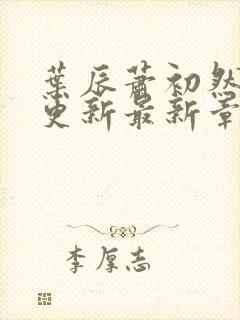 葉辰蕭初然
更新最新章
李厚志